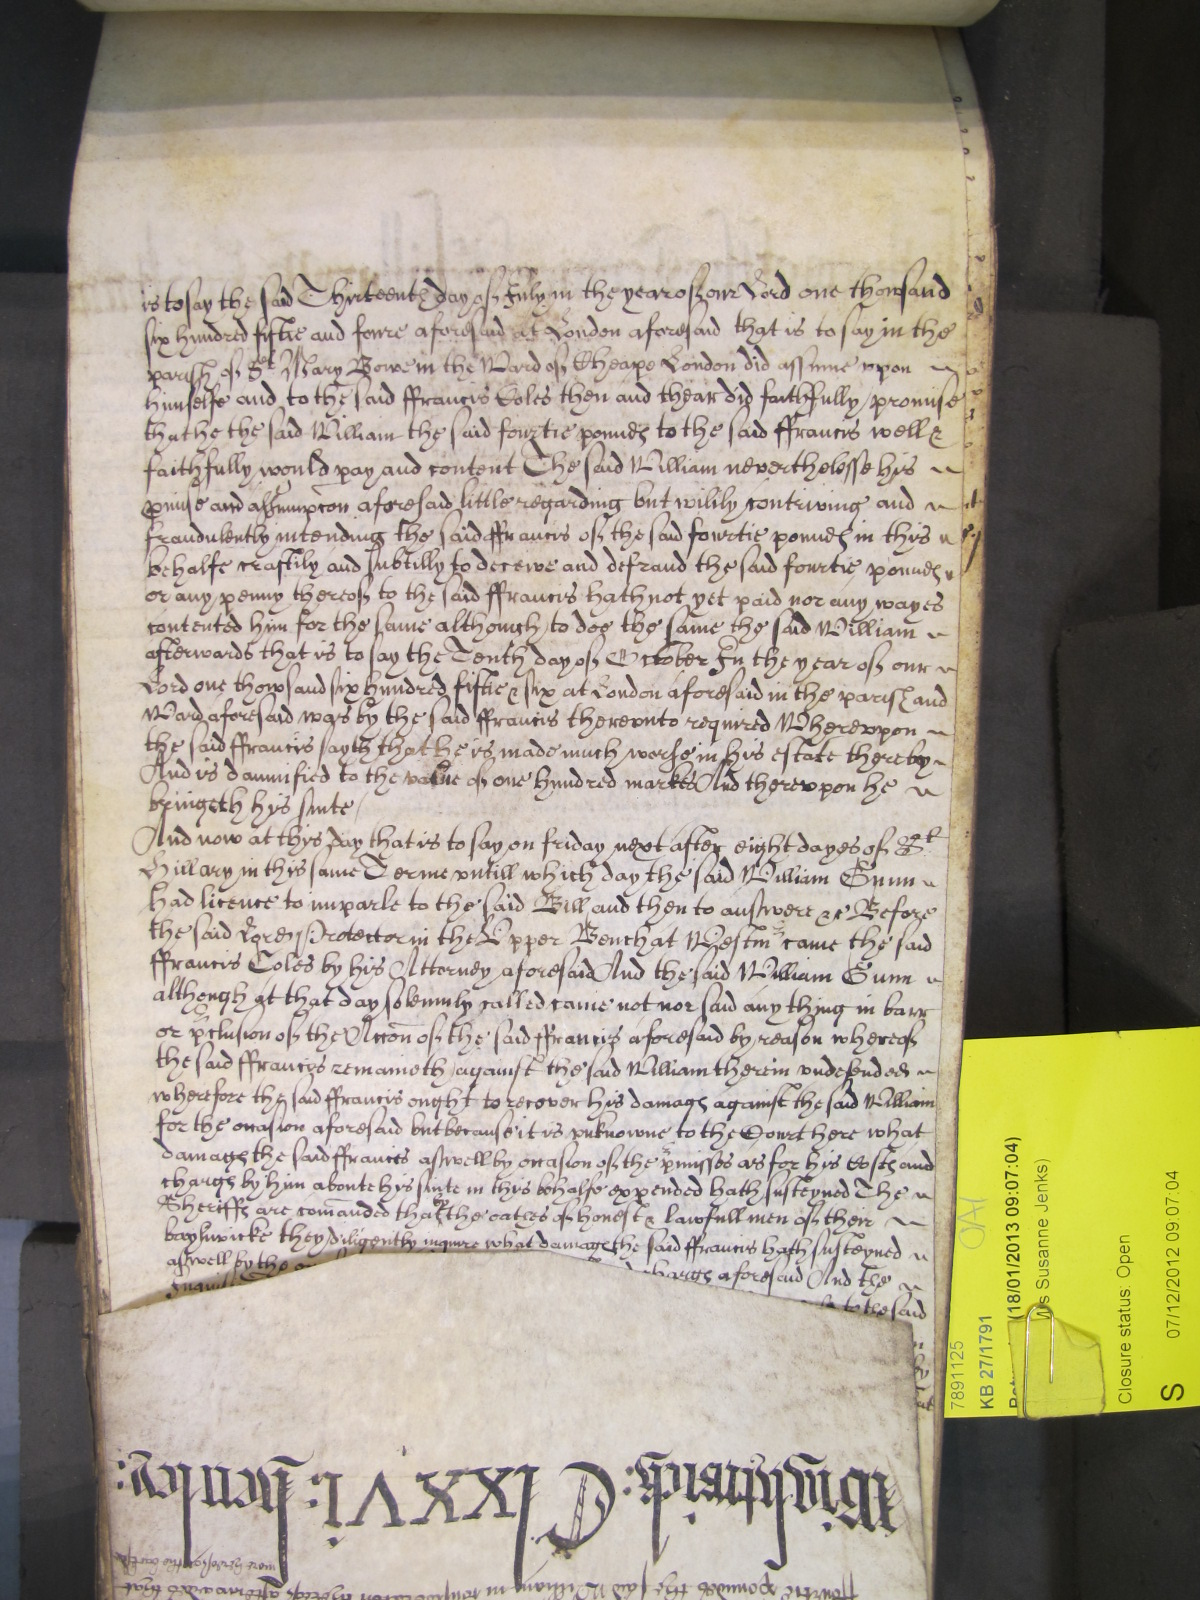 is to say the said Thirteenth day of July in the year of our Lord one thowsand
six hundred fiftie and fowre aforesaid at London aforesaid that is to say in the
parish of St Mary Bowe in the Ward of Cheape London did assume vpon
himselfe and to the said ffrancis Coles then and thear did faithfully promise
that he the said William the said fourtie pounds to the said ffrancis well &
faithfully would pay and content The said William neverthelesse his
pmise and assumpcon aforesaid little regarding but wilily contriving and
fraudulently intending the said ffrancis of the said fourtie pounds in this
behalfe craftily and subtilly to deceive and defraud the said fourtie pounds
or any penny thereof to the said ffrancis hath not yet paid nor any wayes
contented him for the same although to doe the same the said William
afterwards that is to say the Tenth day of October In the year of our
Lord one thowsand six hundred fiftie & six at London aforesaid in the parish and
Ward aforesaid was by the said ffrancis therevnto required Wherevpon
the said ffrancis sayth that he is made much worse in his estate thereby
And is damnified to the value of one hundred markes And therevpon he
bringeth his suite
And now at this day that is to say on friday next after eight dayes of St
Hillary in this same Terme vntill which day the said William Gunn
had licence to imparle to the said Bill and then to answere &c Before
the said Lord Protector in the Vpper Bench at Westm came the said
ffrancis Coles by his Attorney aforesaid And the said William Gunn
although at that day solemnly called came not nor said any thing in barr
or pclusion of the Accon of the said ffrancis aforesaid by reason whereof
the said ffrancis remaineth against the said William therein vndefended
wherefore the said ffrancis ought to recover his damags against the said William
for the occasion aforesaid but because it is vnknowne to the Court here what
damags the said ffrancis aswell by occasion of the pmisses as for his Costs and
chargs by him aboute his suite in this behalfe expended hath susteyned The
Sheriffs are comanded that by the oathes of honest & lawfull men of their
baylywicke they diligently inquire what damags the said ffrancis hath susteyned
aswell by the chargs aforesaid And the
to the said
7891125
KB 27/1791
(18/01/2013 09:07:04)
s Susanne Jenks)
Closure status: Open
S 07/12/2012 09:07:04
Wightwick: Clxxvi: henley: